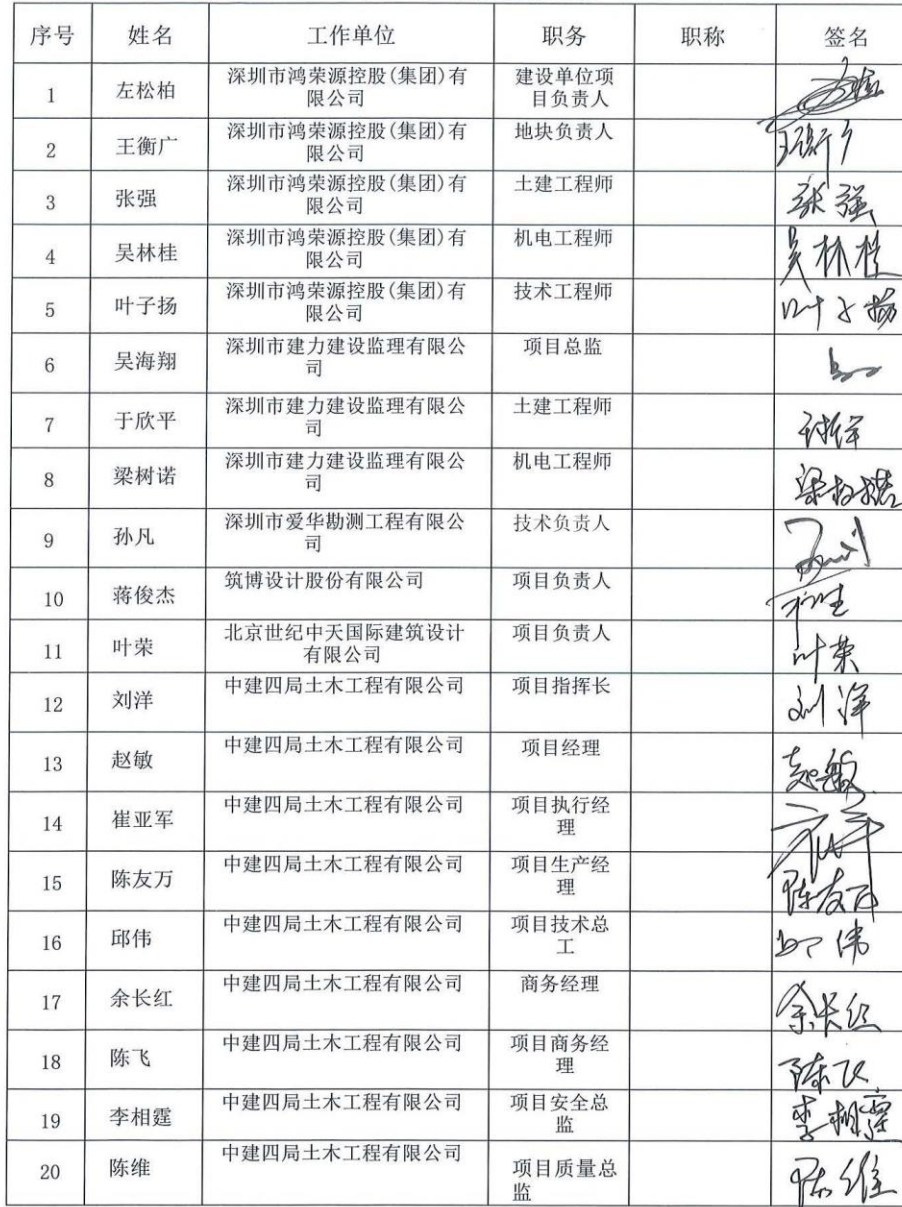 序号 姓名 工作单位 职务 职称 签名
1 左松柏 深圳市鸿荣源控股(集团)有 建设单位项
限公司 目负责人
2 王衡广 深圳市鸿荣源控股(集团)有 地块负责人
限公司
3 张强 深圳市鸿荣源控股(集团)有 土建工程师 张强
限公司
4 吴林桂 深圳市鸿荣源控股(集团)有 机电工程师 吴林桂
限公司
5 叶子扬 深圳市鸿荣源控股(集团)有 技术工程师 叶子扬
限公司
6 吴海翔 深圳市建力建设监理有限公 项目总监
司
7 于欣平 深圳市建力建设监理有限公 土建工程师
司
8 梁树诺 深圳市建力建设监理有限公 机电工程师 梁树诺
司
9 孙凡 深圳市爱华勘测工程有限公 技术负责人
司
10 蒋俊杰 筑博设计股份有限公司 项目负责人
11 叶荣 北京世纪中天国际建筑设计 项目负责人 叶荣
有限公司
12 刘洋 中建四局土木工程有限公司 项目指挥长 刘洋
13 赵敏 中建四局土木工程有限公司 项目经理 赵敏
14 崔亚军 中建四局土木工程有限公司 项目执行经
理
15 陈友万 中建四局土木工程有限公司 项目生产经 陈友万
理
16 邱伟 中建四局土木工程有限公司 项目技术总 邱伟
工
17 余长红 中建四局土木工程有限公司 商务经理 余长红
18 陈飞 中建四局土木工程有限公司 项目商务经 陈飞
理
19 李相霆 中建四局土木工程有限公司 项目安全总 李相霆
监
20 陈维 中建四局土木工程有限公司 项目质量总 陈维
监